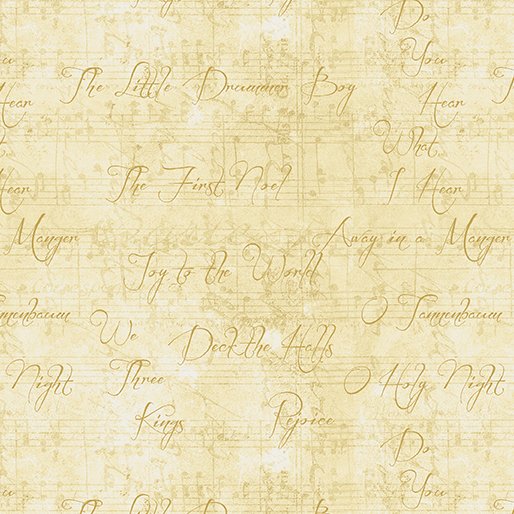 Do
You
The Little Drummer Boy
Hear
Hear
What
The First Noel
I Hear
Hear
Manger
Away in a Manger
Joy to the World
nnenbaum
O Tannenbaum
We
Deck the Halls
Night
Three
O Holy Night
Kings
Rejoice
Do
You
The Little Drummer Boy